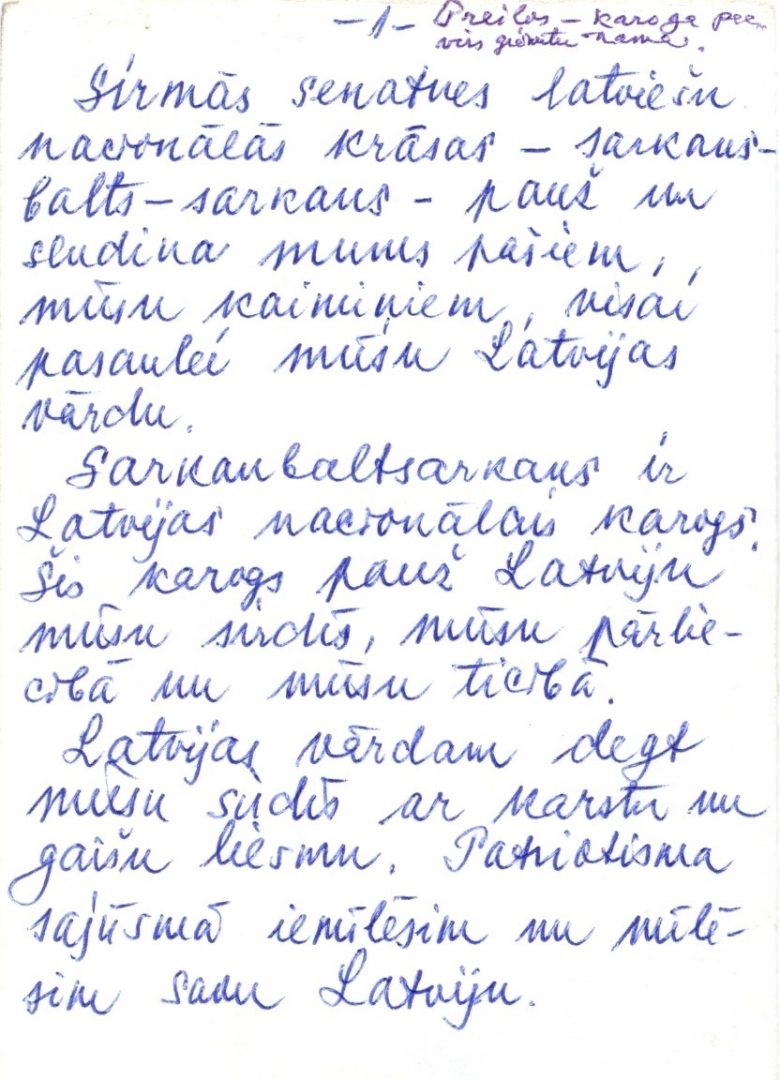 -1- Preiļos - karoga pee
virs ģimeņu nama.
Sirmās senatnes latviešu
nacionālās krāsas - sarkans-
balts-sarkans - pauž un
sludina mums pašiem,
mūsu kaimiņiem, visai
pasaulei mūsu Latvijas
vārdu.
Sarkanbaltsarkans ir
Latvijas nacionālais karogs.
Šis karogs pauž Latviju
mūsu sirdīs, mūsu pārlie-
cībā un mūsu ticībā.
Latvijas vārdam degt
mūsu sirdīs ar karstu un
gaišu liesmu. Patriotisma
sajūsmā iemīlēsim un mīlē-
sim savu Latviju.